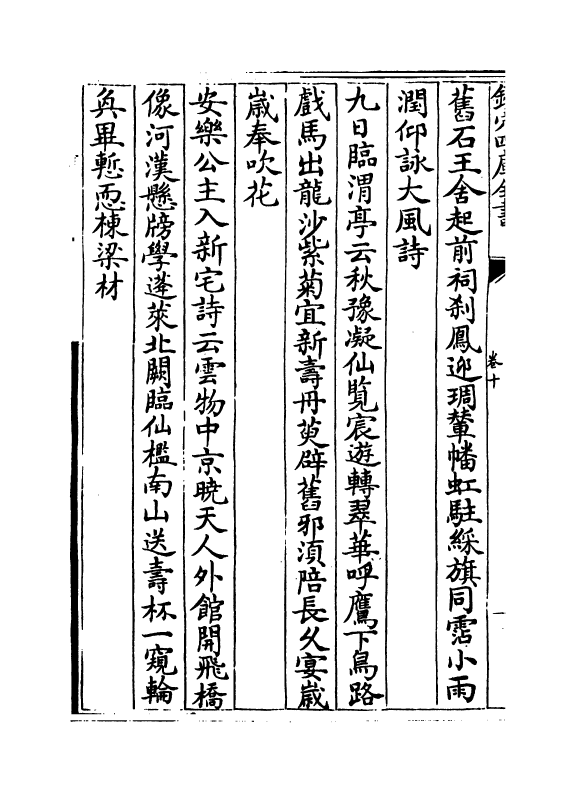 欽定四庫全書
卷十
一
舊石王舍起前祠刹鳳迎琱輦幡虹駐綵旗同霑小雨
潤仰詠大風詩
九日臨渭亭云秋豫凝仙覽宸遊轉翠華呼鷹下鳥路
戲馬出龍沙紫菊宜新壽丹萸辟舊邪須陪長久宴嵗
嵗奉吹花
安樂公主入新宅詩云雲物中京曉天人外館開飛橋
像河漢懸牓學蓬萊北闕臨仙檻南山送壽杯一窺輪
奐畢慙恧棟梁材